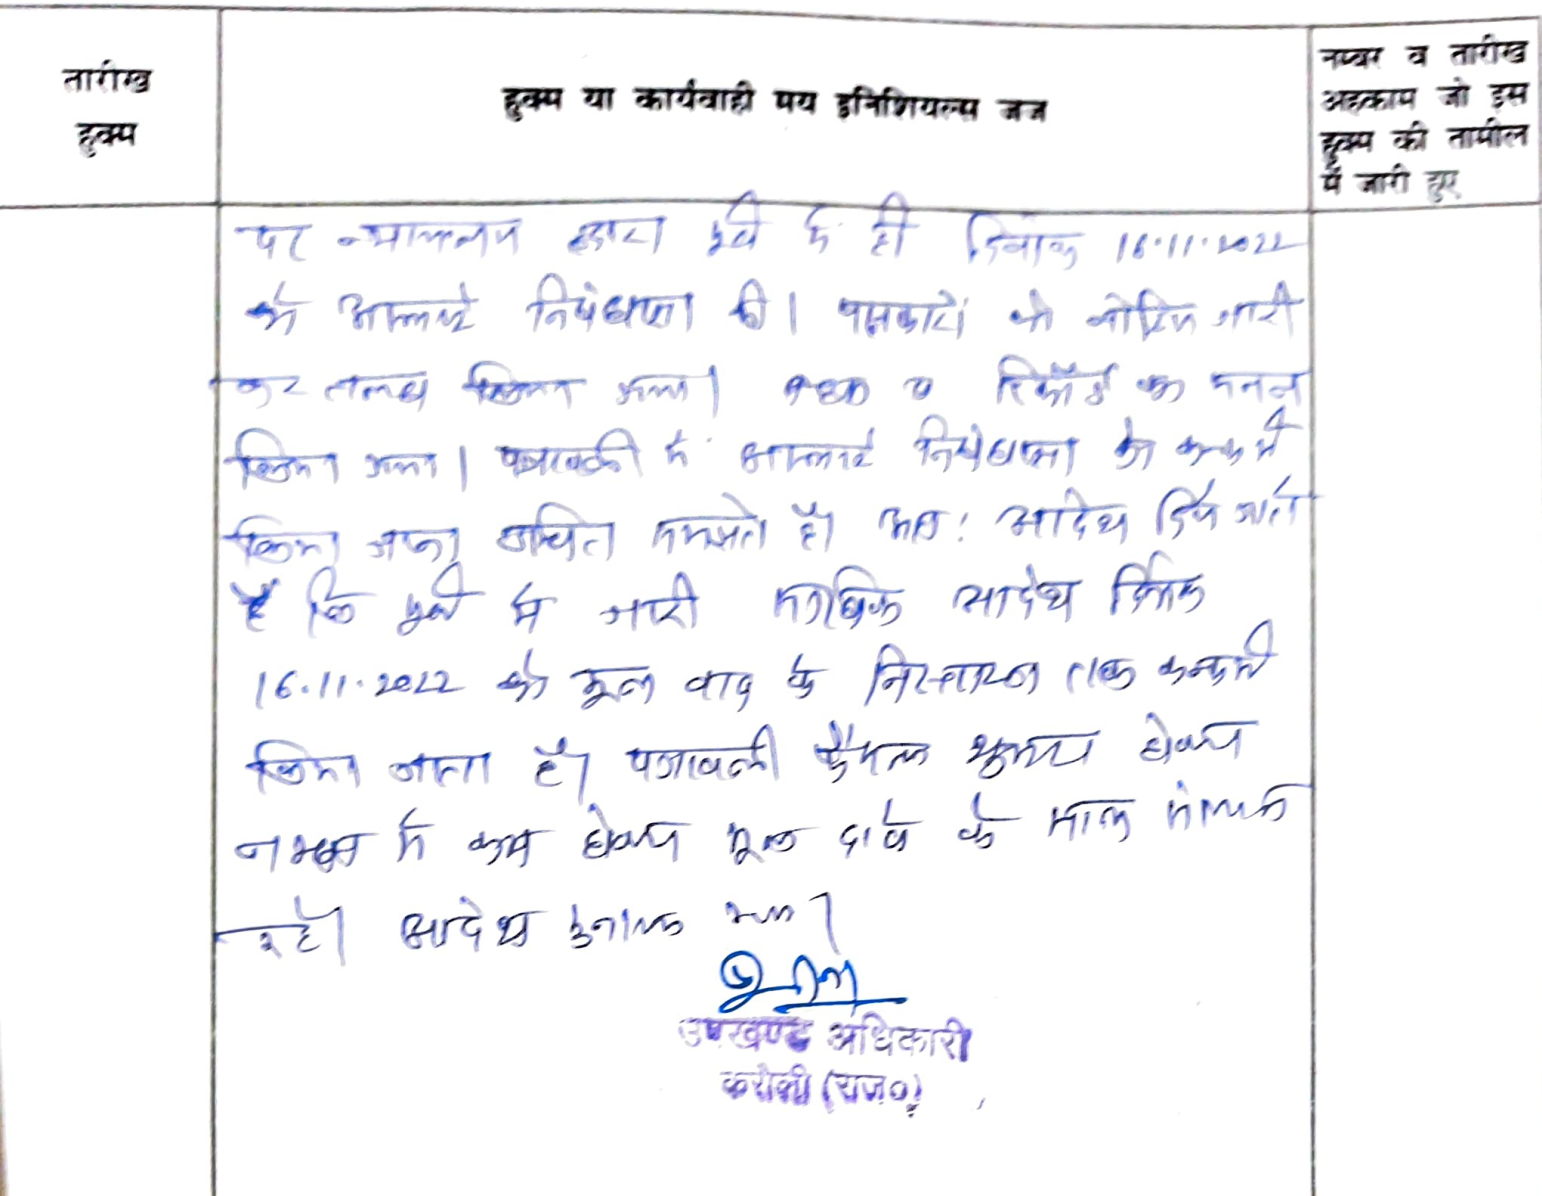 तारीख
हुक्म
हुक्म या कार्यवाही मय इनिशियल्स जज
नम्बर व तारीख
अहकाम जो इस
हुक्म की तामील
में जारी हुए
पर न्यायालय द्वारा पूर्व में ही दिनांक 16.11.2022
को अस्थाई निषेधाज्ञा की। पक्षकारों को नोटिस जारी
कर तलब किया गया। व रिकॉर्ड का मनन
किया गया। पत्रावली में अस्थाई निषेधाज्ञा को कन्फर्म
किया जाना उचित समझते है। अतः आदेश दिये जाते
है कि पूर्व में जारी आदेश दिनांक
16.11.2022 को मूल वाद के निस्तारण तक कन्फर्म
किया जाता है। पत्रावली फैसल शुमार होकर
नम्बर से कम होकर मूल दावे के साथ संलग्न
रहे। आदेश सुनाया गया।
उपखण्ड अधिकारी
करौली (राज०)